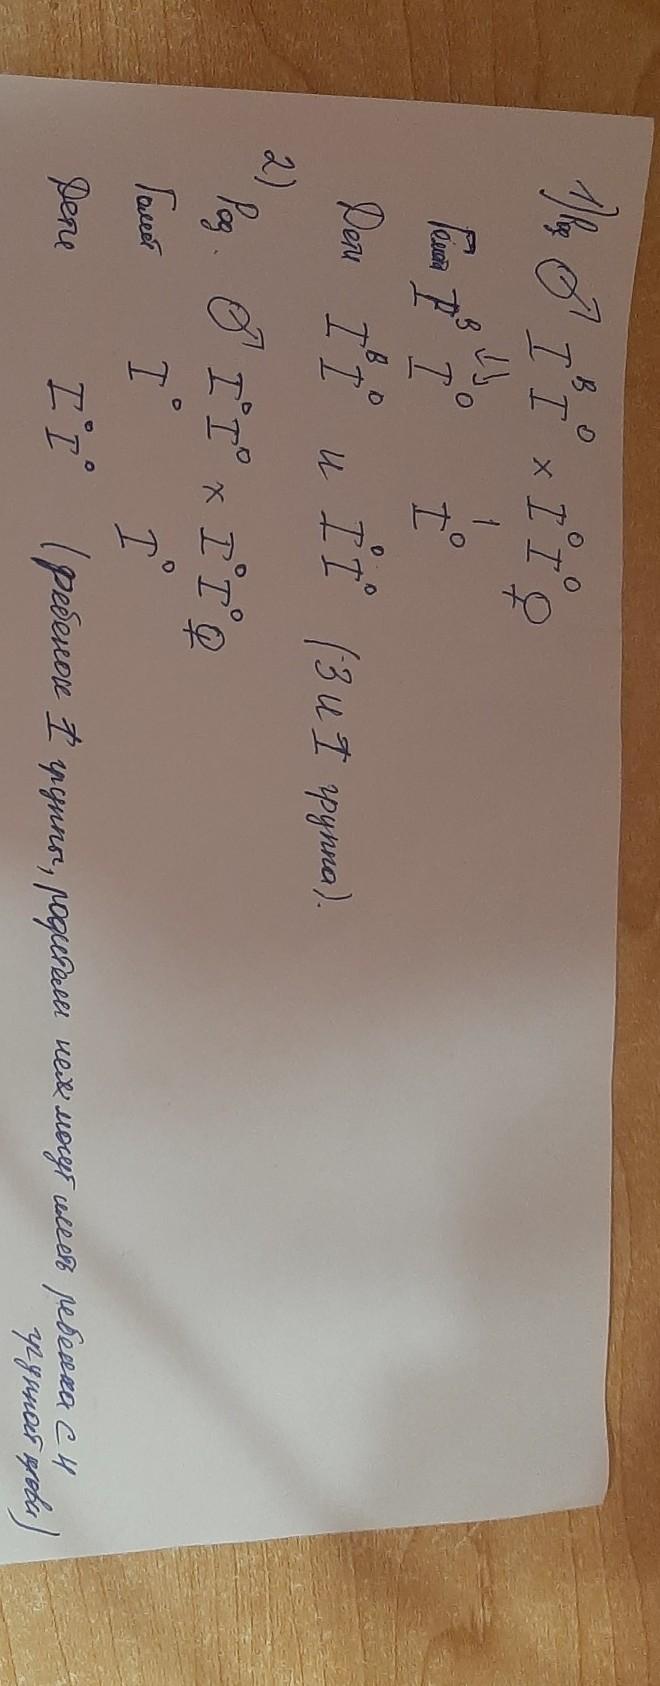 1) Род ♂ IᴮI⁰ × I⁰I⁰ ♀
Гаметы Iᴮ I⁰ I⁰
Дети IᴮI⁰ и I⁰I⁰ (3 и I группа).
2)
Род. ♂ I⁰I⁰ × I⁰I⁰ ♀
Гамет I⁰ I⁰
Дети I⁰I⁰ (ребенок I группы, родители не могут иметь ребенка с 4
группой крови)